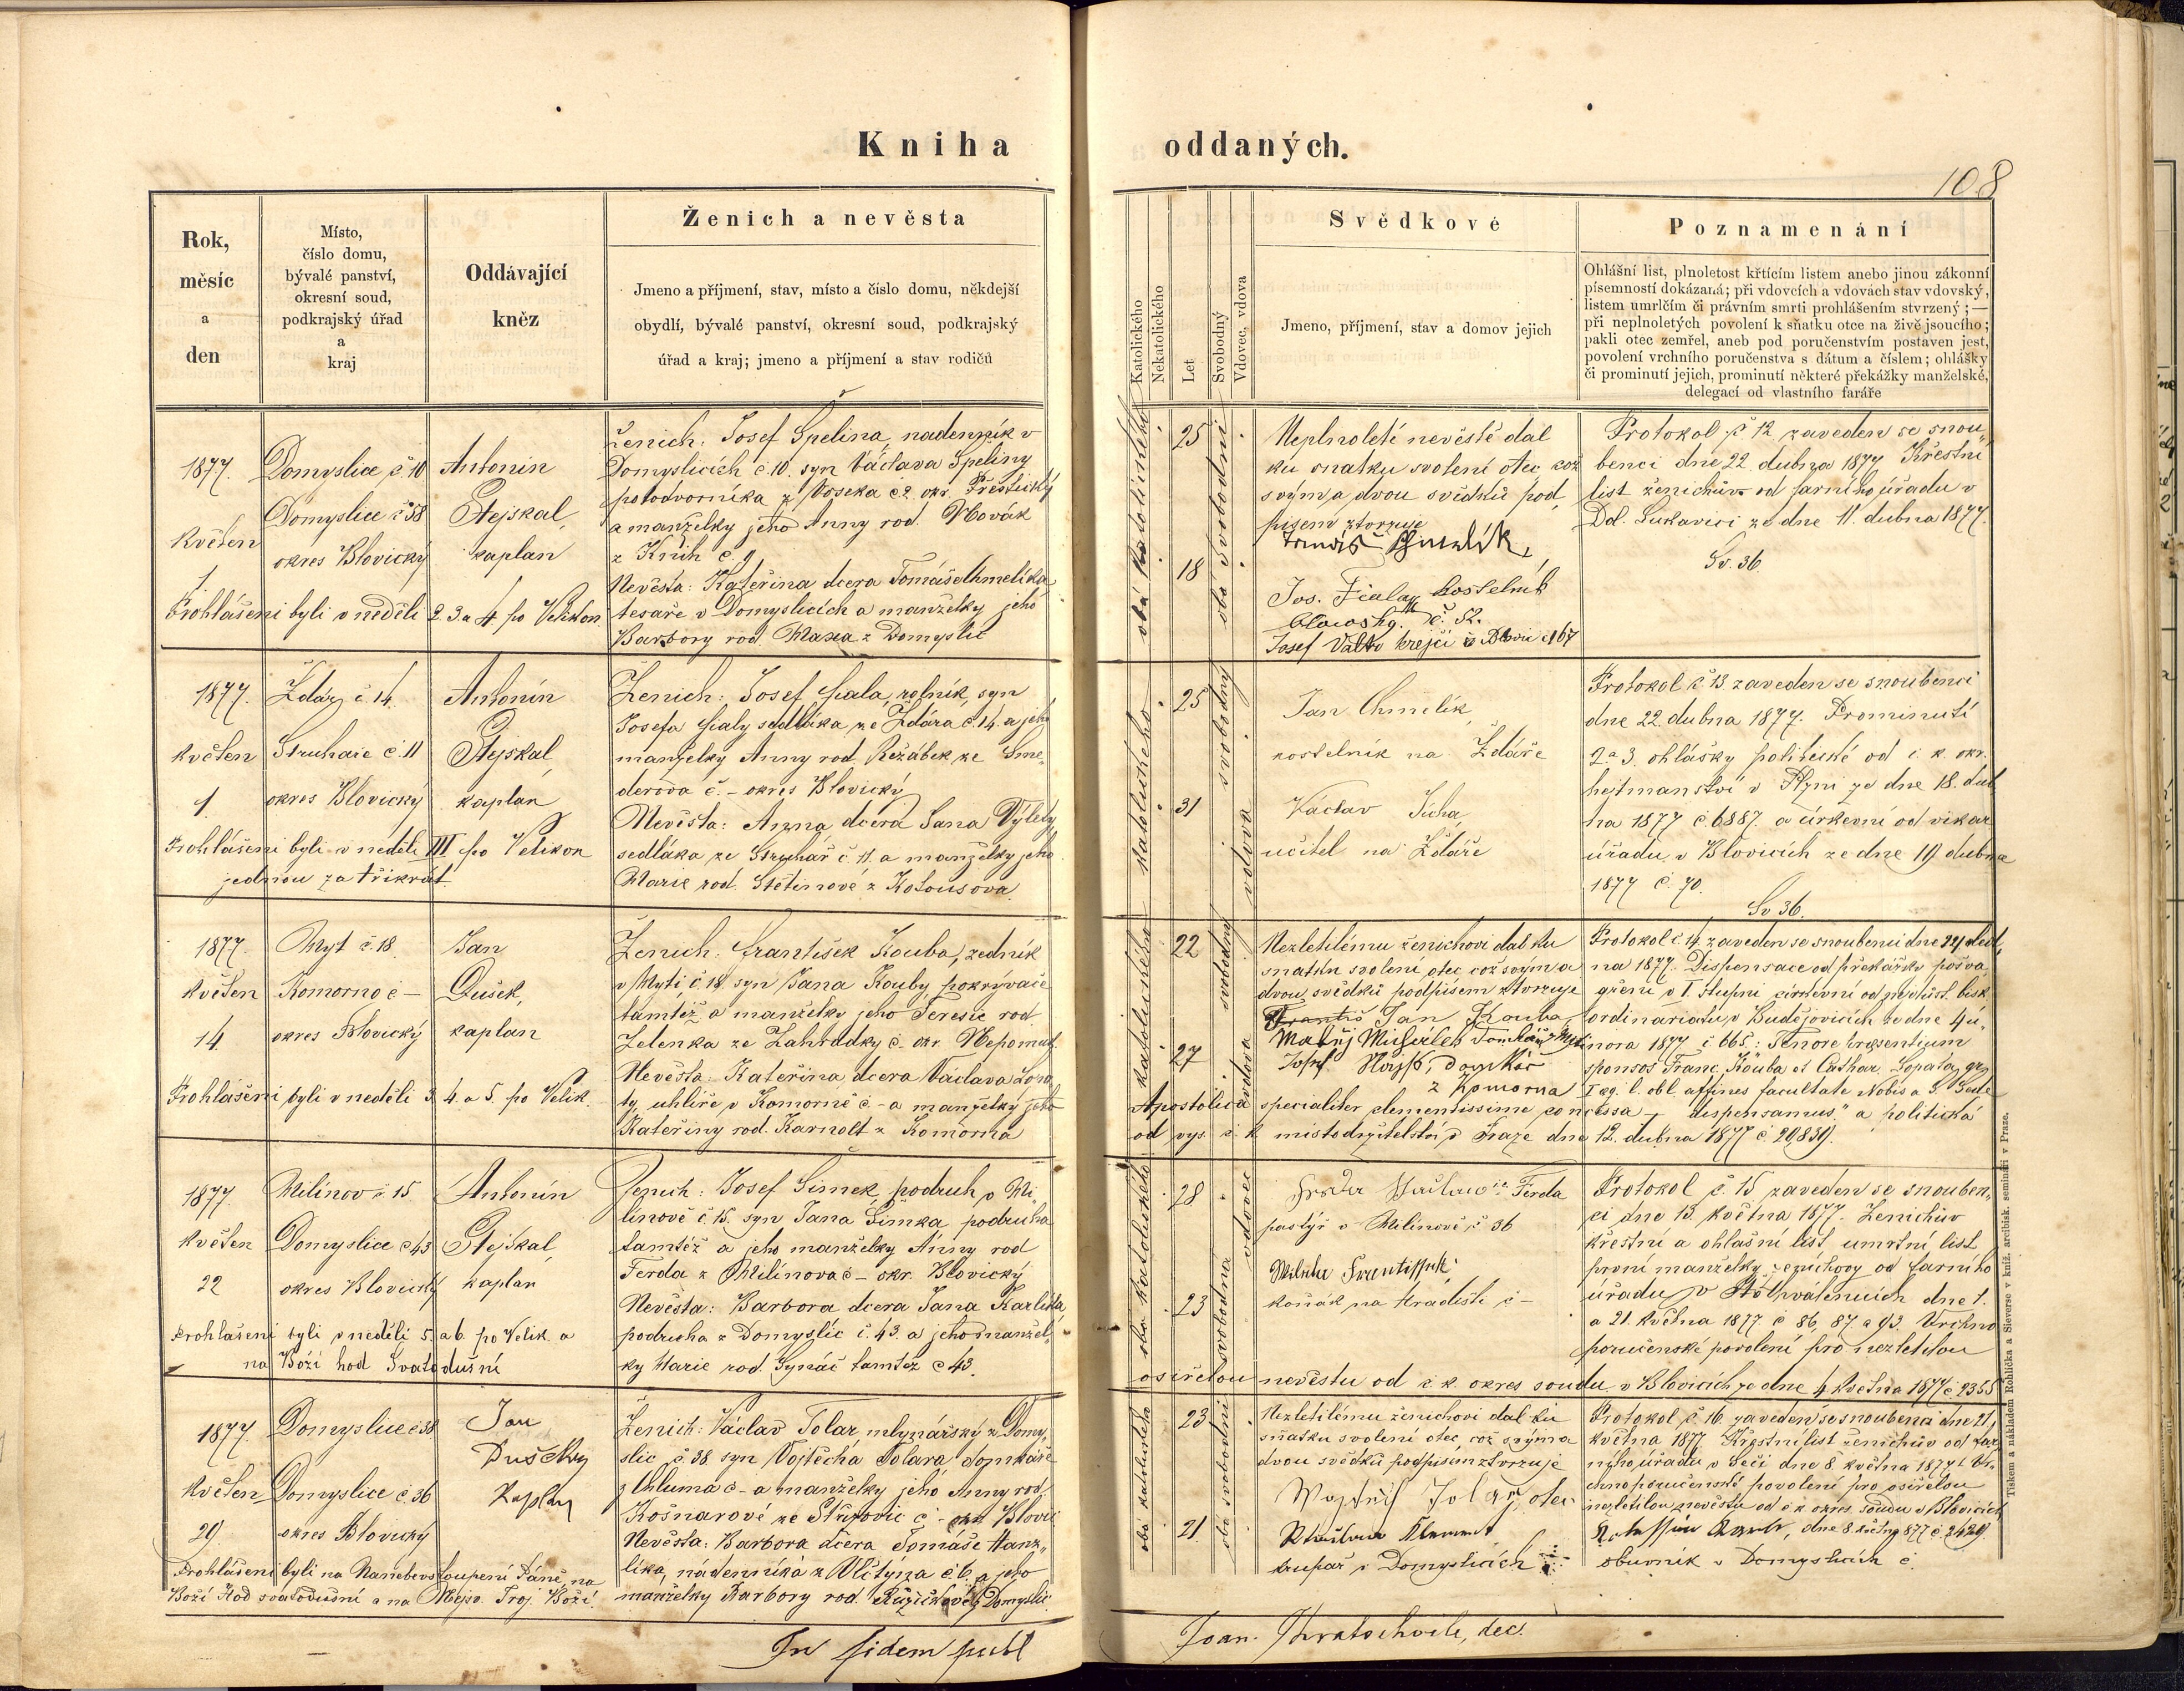 Kniha oddaných.
108
Rok,
měsíc
a
den
Místo,
číslo domu,
bývalé panství,
okresní soud,
podkrajský úřad
a
kraj
Oddávající
kněz
Ženich a nevěsta
Jmeno a příjmení, stav, místo a číslo domu, někdejší
obydlí, bývalé panství, okresní soud, podkrajský
úřad a kraj; jmeno a příjmení a stav rodičů
Katolického
Nekatolického
Let
Svobodný
Vdovec, vdova
Svědkové
Jmeno, příjmení, stav a domov jejich
Poznamenání
Ohlášní list, plnoletost křtícím listem anebo jinou zákonní
písemností dokázaná; při vdovcích a vdovách stav vdovský,
listem umrlčím či právním smrti prohlášením stvrzený; —
při neplnoletých povolení k sňatku otce na živě jsoucího;
pakli otec zemřel, aneb pod poručenstvím postaven jest,
povolení vrchního poručenstva s dátum a číslem; ohlášky
či prominutí jejich, prominutí některé překážky manželské,
delegací od vlastního faráře
1877.
Květen
1.
Domyslice č 10
Domyslice č 58
okres Blovický
Antonín
Stejskal,
kaplan
Prohlášeni byli v neděli 2. 3. a 4. po Velikon.
Ženich: Josef Špelina, nadenník v
Domyslicích č. 10. syn Václava Špeliny
potodvorníka z Voseka č 2. okr. Přeštický
a manželky jeho Anny rod. Novák
z Knih č 9.
Nevěsta: Kateřina dcera Tomáše Chmelíka
tesaře v Domyslicích a manželky jeho
Barbory rod. Maxa z Domyslic
obá katolického
25
18
obá svobodni
Neplnoleté nevěstě dal
ku snatku svolení otec což
svýma dvou svědků pod,
pisem ztvrzuje
Tomáš Chmelík,
Jos. Fiala, kostelník
č. 52.
Josef Valta krejčí č 167
Protokol č 12 zaveden se snou,
benci dne 22. dubna 1877 Křestní
list ženichův od farního úřadu v
Dol. Lukavici ze dne 11. dubna 1877.
Sv. 36.
1877.
Květen
1.
Ždár č 14.
Struhaře č. 11
okres Blovický
Antonín
Stejskal,
kaplan
Prohlášeni byli v neděli III po Velikon
jednou za třikrát
Ženich: Josef Fiala, rolník, syn
Josefa Fialy sedláka ze Ždára č. 14. a jeho
manželky Anny rod. Režábek ze Sme,
derova č. – okres Blovický
Nevěsta: Anna dcera Jana Výlety
sedláka ze Struhař č. 11. a manželky jeho
Marie rod. Stětinové z Kotousova
katolického
25
31
svobodný
vdova
Jan Chmelík,
kostelník na Ždáře
Václav Jícha,
učitel na Ždáře
Protokol č 13 zaveden se snoubenci
dne 22. dubna 1877. Prominutí
2. a 3. ohlášky politické od c. k. okr.
hejtmanství v Plzni ze dne 18. dub
na 1877 č. 6887. a církevní od vikar
úřadu v Blovicích ze dne 19 dubna
1877 č. 70.
Sv 36.
1877.
Květen
14.
Myt č. 18.
Komorno č –
okres Blovický
Jan
Dušek,
kaplan
Prohlášeni byli v neděli 3. 4. a 5. po Velik.
Ženich: František Kouba, zedník
v Mytí, č. 18 syn Jana Kouby, pokrývače
tamtéž a manželky jeho Teresie rod.
Zelenka ze Zahrádky č – okr. Nepomuk
Nevěsta: Kateřina dcera Václava Lopa
ty, uhlíře v Komorně č – a manželky jeho
Kateřiny rod. Karnolt z Komorna
katolického
22
27
svobodný
vdova
Nezletilému ženichovi dal ku
snatku svolení otec což svým a
dvou svědků podpisem ztvrzuje
Jan Kouba,
Matěj
Josef domkář
z Komorna
Protokol č. 14. zaveden se snoubenci dne 22 dub,
na 1877. Dispensace od překážky pošva,
gření v I. stupni církevní od nejdůst. bisk
ordinariatu v Budějovicích ze dne 4 ú,
nora 1877 č 665: Tenore praesentium
sponsos Franc. Kouba et Cathar. Lopata, gr,
I aeq. l. obl. affines facultate Nobis a S. Sede
Apostolica specialiter clementissime concessa – dispensamus" a politická
od vys. c. k. místodržitelství v Praze dne 12. dubna 1877 č. 20839.
1877.
Květen
22
Milínov č. 15.
Domyslice č 43
okres Blovický
Antonín
Stejskal,
kaplan
Prohlášeni byli v neděli 5. a 6. po Velik. a
na Boží hod Svatodušní
Ženich: Josef Šimek, podruh v Mi,
línově č. 15. syn Jana Šimka podruha
tamtéž a jeho manželky Anny rod
Ferda z Milínova č – okr. Blovický
Nevěsta: Barbora dcera Jana Karlíka
podruha z Domyslic č. 43. a jeho manžel,
ky Marie rod. Synáč tamtéž č 43.
oba katolického
28
23
vdovec
svobodna
Ferda
pastýř v Milínově č 36
koňák na Hradišti č –
Protokol č. 15 zaveden se snouben,
ci dne 13. Května 1877. Ženichův
křestní a ohlašní list umrtní list
první manželky ženichovy od farního
úřadu v dne 1.
a 21. května 1877 č 86, 87 a 93. Vrchno
poručenské povolení pro nezletilou
osiřelou nevěstu od c. k. okres soudu v Blovicích ze dne 4 května 1877 č 2355
1877.
Květen
29.
Domyslice č 38
Domyslice č. 36
okres Blovický
Jan
Dušek
Kaplan
Prohlášeni byli na Nanebevstoupení Páně, na
Boží Hod svatodušní a na Nejsv. Troj. Boží.
Ženich: Václav Tolar, mlynářský z Domy,
slic č. 38. syn Vojtěcha Tolara, domkáře
z Chluma č – a manželky jeho Anny rod.
Košnarové ze Střížovic č – okr Blovic
Nevěsta: Barbora dcera Tomáše Hanz,,
líka, nádenníka z Vlčtýna č 6. a jeho
manželky Barbory rod. Růžičkové z Domyslic
obá katolického
23
21.
oba svobodni
Nezletilému ženichovi dal ku
sňatku svolení otec, což svýma
dvou svědků podpisem ztvrzuje
Tolar, otec
krupař v Domyslicích
Protokol č. 16 zaveden se snoubenci dne 21.
května 1877 Křestní list ženichův od far,
ního úřadu v Seči dne 8. května 1877. Vr,
chnoporučenské povolení pro osiřelou
nezletilou nevěstu od c k okres. soudu v Blovicích
dne 8 května 877 č 2429.
obuvník v Domyslicích č
In fidem publ
Joan. Kratochvile, dec.
Tiskem a nákladem Rohlíčka a Sieverse v kníž. arcibisk. semináři v Praze.